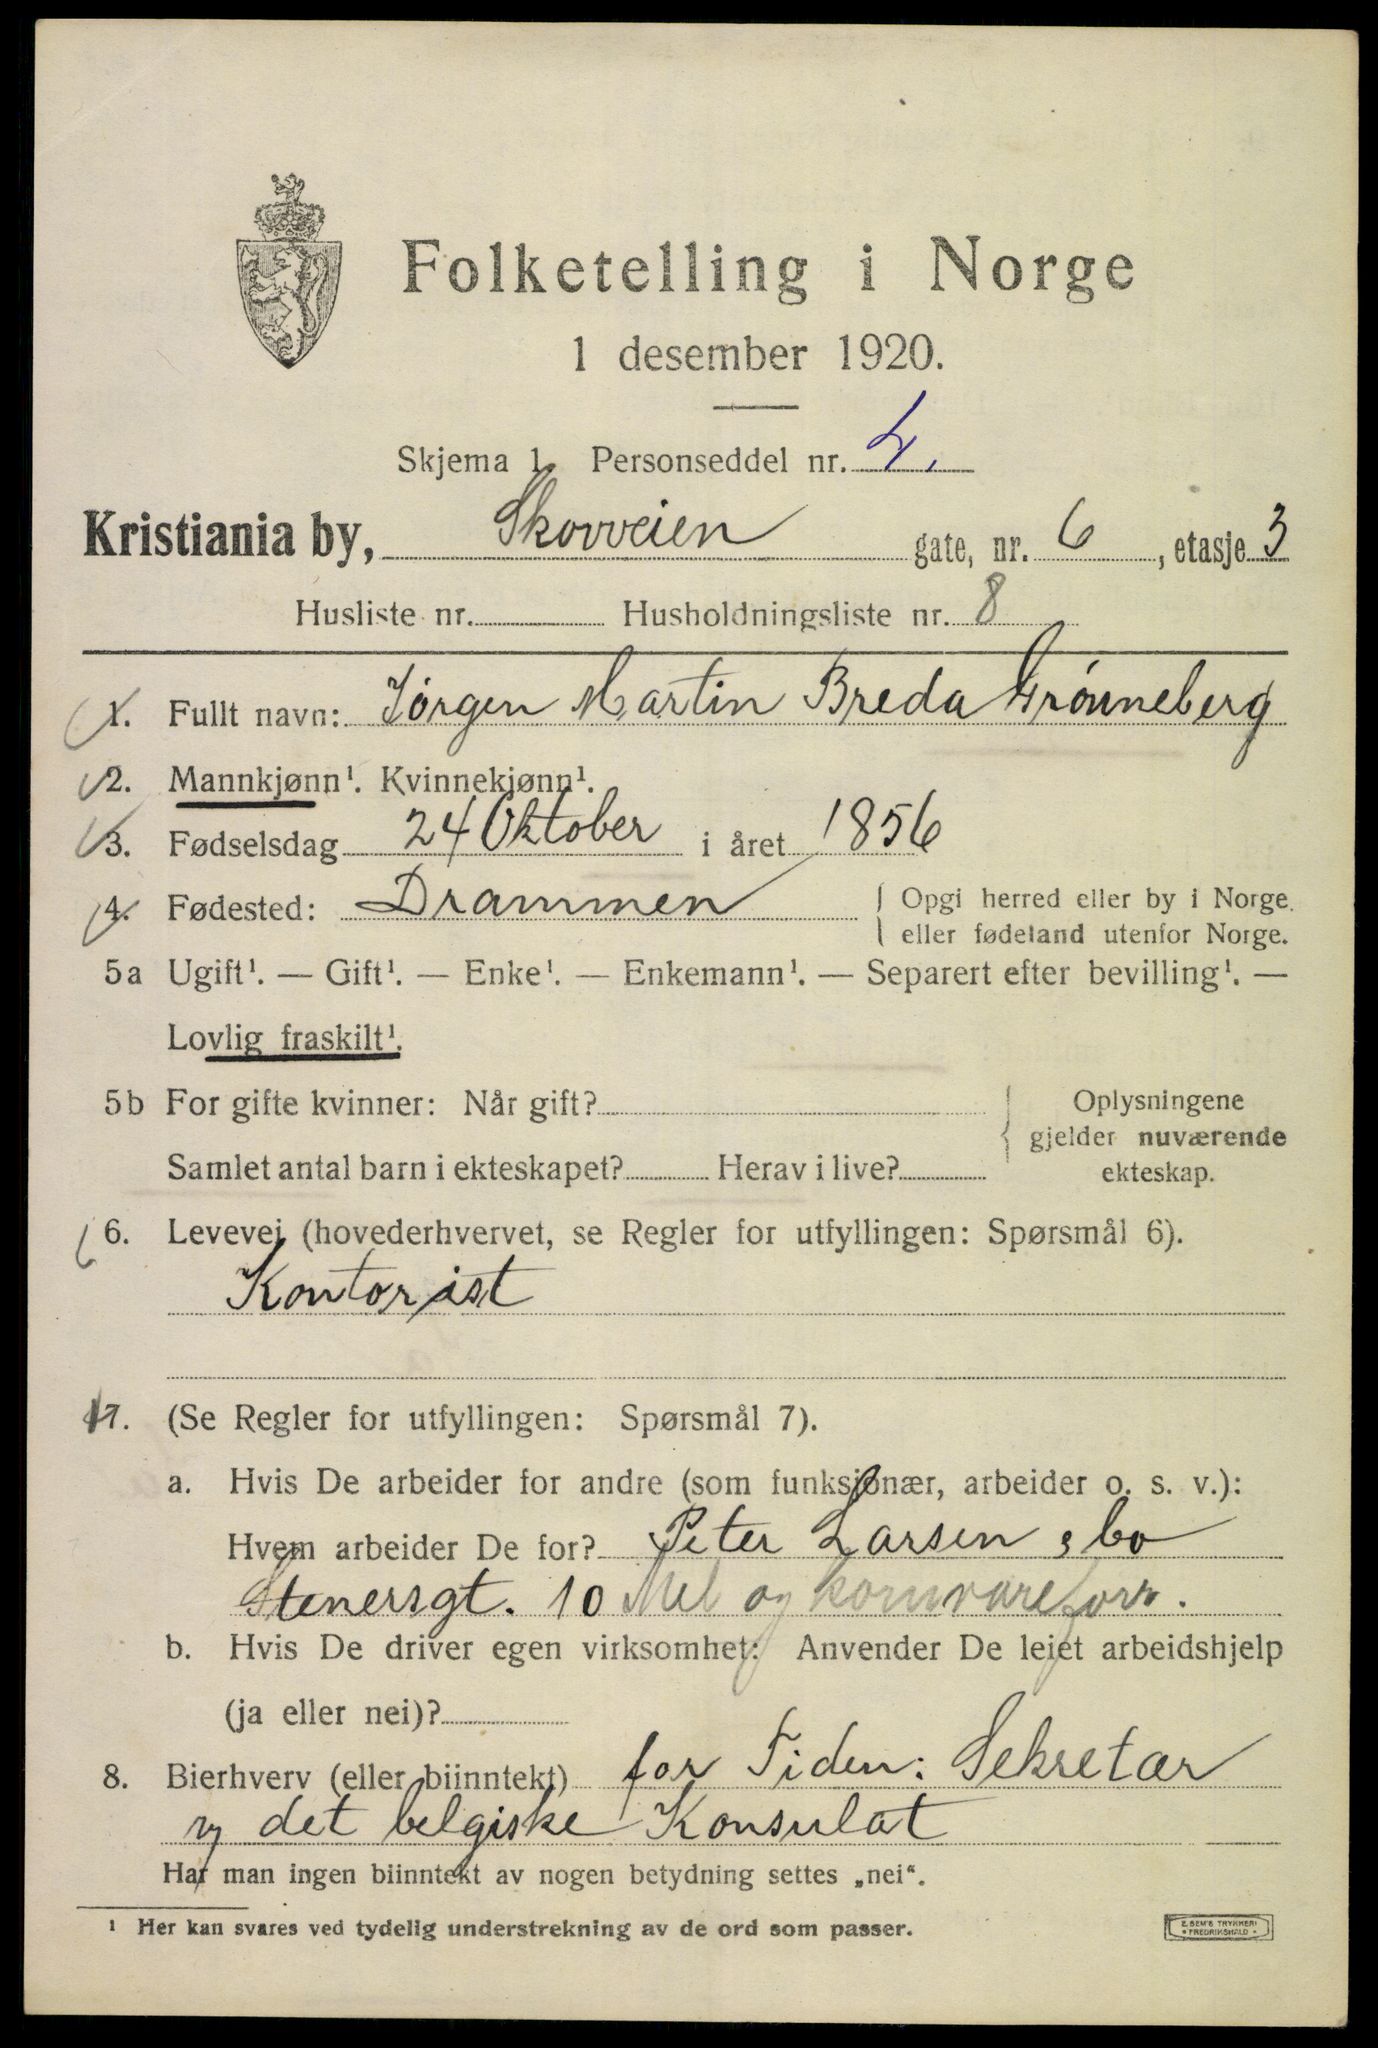 Folketelling i Norge
1 desember 1920.
Skjema 1. Personseddel nr. 4.
Kristiania by, Skovveien gate, nr. 6, etasje 3
Husliste nr. Husholdningsliste nr. 8
1. Fullt navn: Jørgen Martin Breda Grønneberg
2. Mannkjønn¹. Kvinnekjønn¹.
3. Fødselsdag 24 Oktober i året 1856
4. Fødested: Drammen { Opgi herred eller by i Norge
eller fødeland utenfor Norge.
5a Ugift¹. — Gift¹. — Enke¹. — Enkemann¹. — Separert efter bevilling¹. —
Lovlig fraskilt¹.
5b For gifte kvinner: Når gift? { Oplysningene
gjelder nuværende
Samlet antal barn i ekteskapet? Herav i live? ekteskap.
6. Levevei (hovederhvervet, se Regler for utfyllingen: Spørsmål 6).
Kontorist
7. (Se Regler for utfyllingen: Spørsmål 7).
a. Hvis De arbeider for andre (som funksjonær, arbeider o. s. v.):
Hvem arbeider De for? Peter Larsen & Co
Stenersgt. 10 Mel og kornvareforr.
b. Hvis De driver egen virksomhet: Anvender De leiet arbeidshjelp
(ja eller nei)?
8. Bierhverv (eller biinntekt) for Tiden: Sekretær
v det belgiske Konsulat
Har man ingen biinntekt av nogen betydning settes „nei“.
¹ Her kan svares ved tydelig understrekning av de ord som passer.
E. SEM'S TRYKKERI
* FREDRIKSHALD *